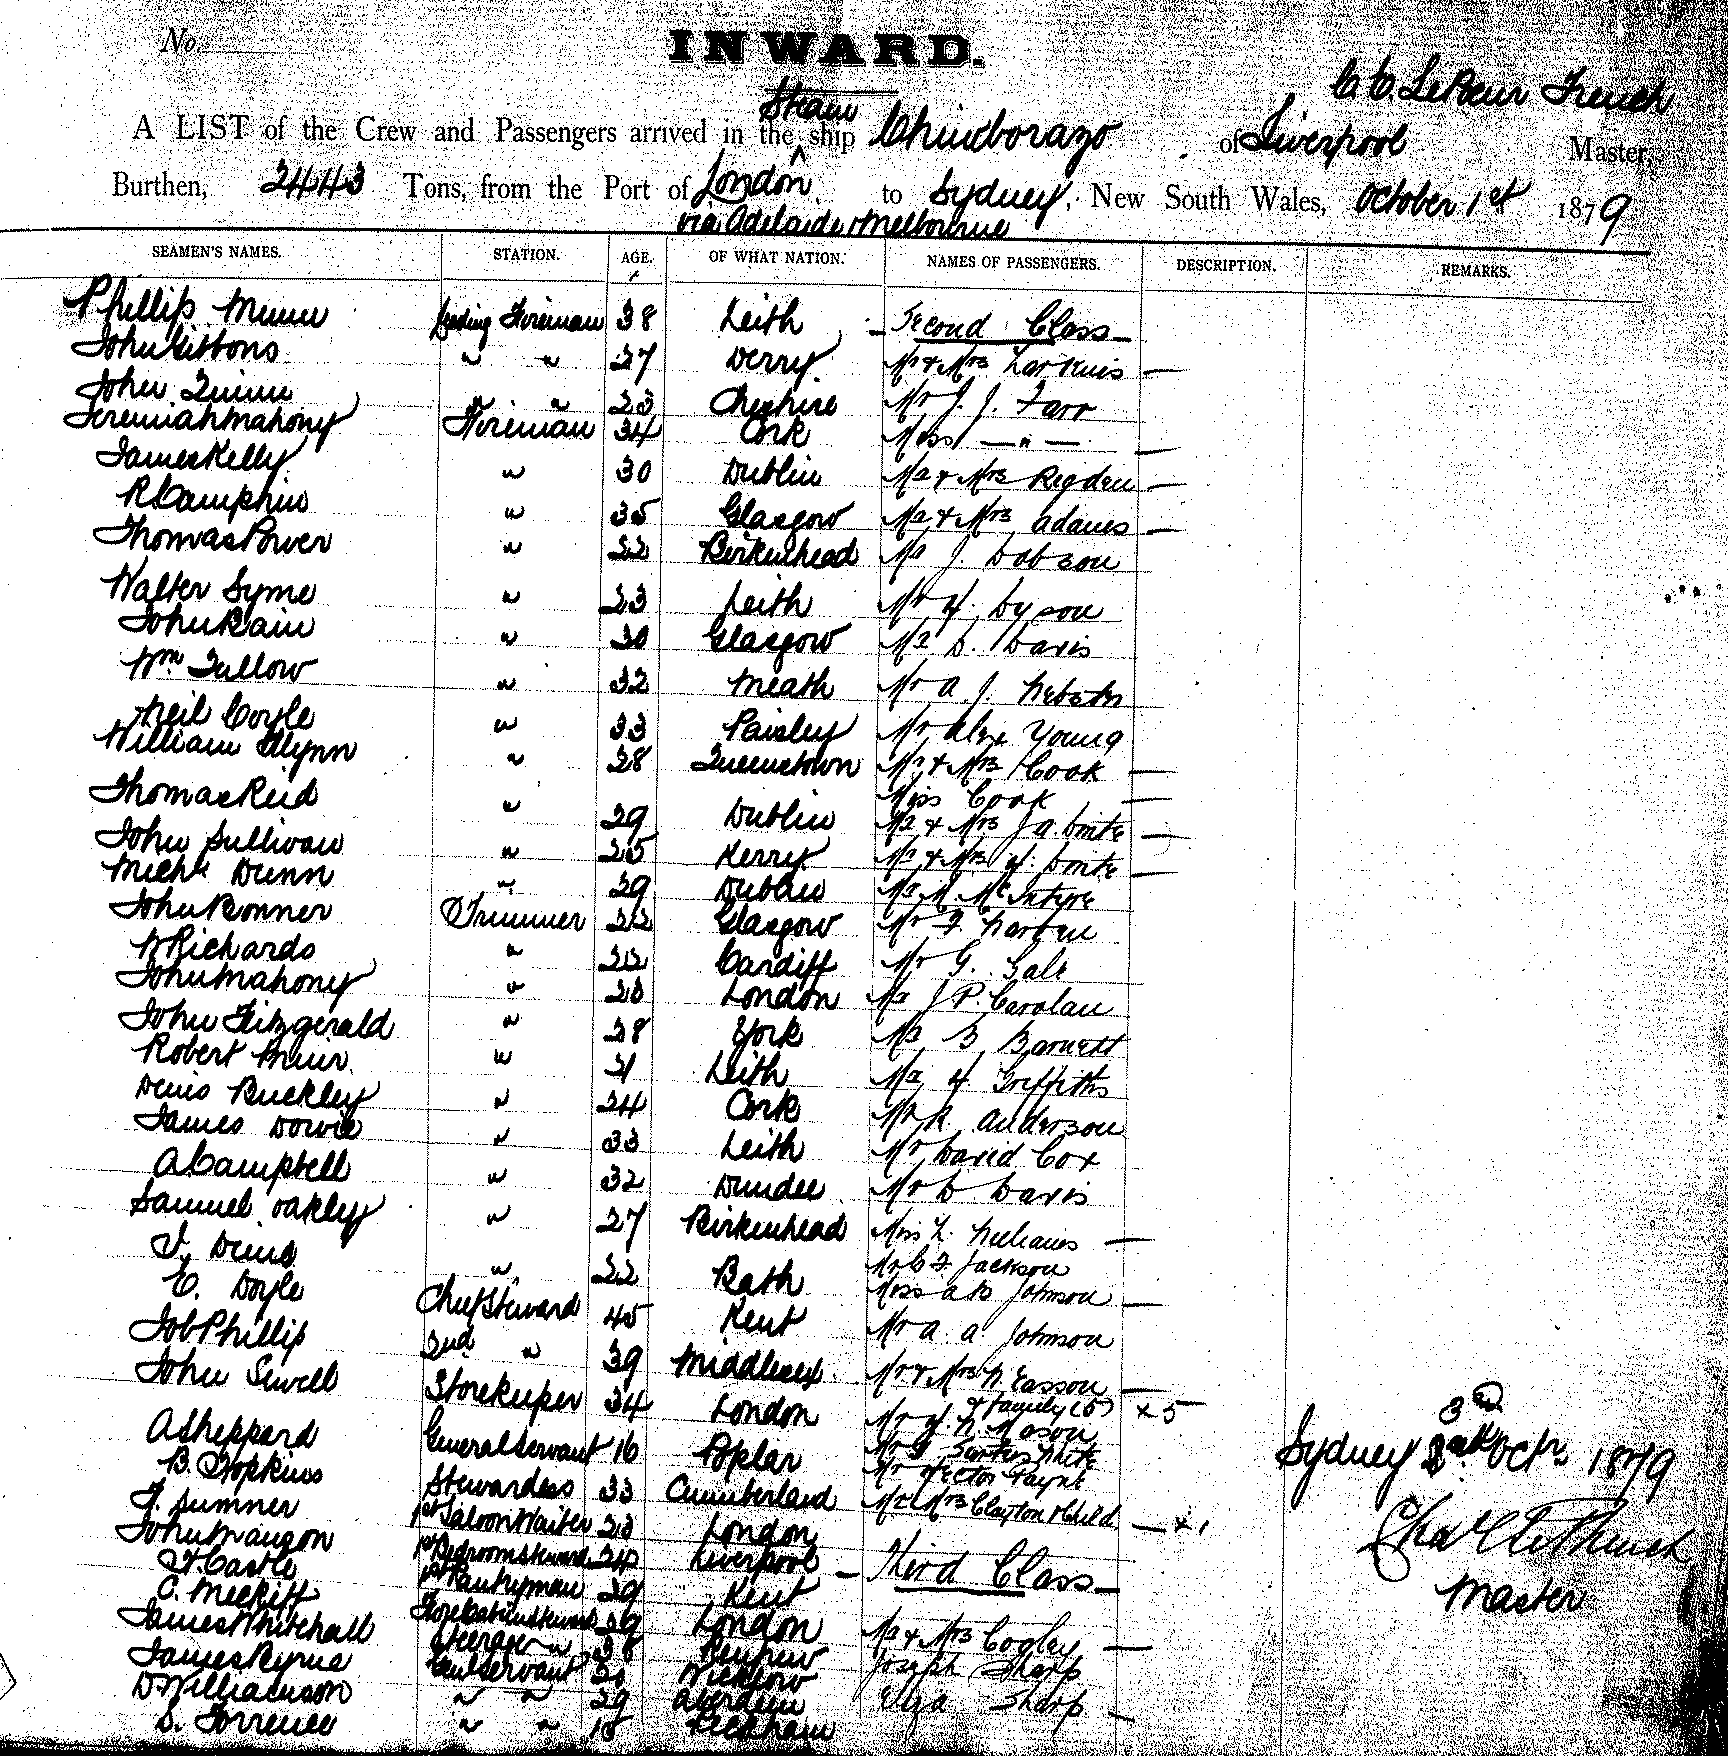 No.
INWARD.
C. C. Le French
Steam
A LIST of the Crew and Passengers arrived in the ship Chimborazo of Liverpool Master,
Burthen, 2443 Tons, from the Port of London to Sydney, New South Wales, October 1st 1879
via Adelaide & Melbourne
SEAMEN'S NAMES. STATION. AGE. OF WHAT NATION. NAMES OF PASSENGERS. DESCRIPTION. REMARKS.
Phillip Leading Fireman 38 Leith — Second Class —
John Gibbons " " 27 Derry Mr & Mrs Larkins —
John Quinn " " 23 Cheshire Mr J. J. Farr
Jeremiah Mahony Fireman 34 Cork Miss — " — —
James Kelly " 30 Dublin Mr & Mrs Rigden —
R Camphin " 35 Glasgow Mr & Mrs Adams —
Thomas Power " 22 Birkenhead Mr J. Dobson
Walter Syme " 23 Leith Mr H. Dyson
John Bain " 30 Glasgow Mr D. Davis
Wm Tullow " 32 Meath Mr A. J. Webster
Neil Coyle " 33 Paisley Mr Alex Young
William Glynn " 28 Queenstown Mr & Mrs Cook —
Miss Cook —
Thomas Reid " 29 Dublin Mr & Mrs J A —
John Sullivan " 25 Kerry Mr & Mrs H. —
Michl Dunn " 29 Dublin Mr McIntyre
John Bonner Trimmer 22 Glasgow Mr F.
W Richards " 22 Cardiff Mr G. Gale
John Mahony " 23 London Mr J P. Carolan
John Fitzgerald " 28 York Mr B Barnett
Robert Muir " 21 Leith Mr H. Griffiths
Denis Buckley " 24 Cork Mr R Anderson
James Dowie " 33 Leith Mr David Cox
A Campbell " 32 Dundee Mr D Davis
Samuel Oakley " 27 Birkenhead Miss Williams —
" 22 Bath Mr C F Jackson
E. Doyle Chief Steward 45 Kent Miss A B Johnson —
Job Phillip 2nd " 39 Middlesex Mr A. A. Johnson
John Sewell Storekeeper 34 London Mr & Mrs Easson —
& Family (5) x 5
Mr H. N. Mason
A Sheppard General Servant 16 Poplar Mr White
B. Hopkins Stewardess 33 Cumberland Mr Hector Payne
F. Sumner 1st Saloon Waiter 23 London Mr & Mrs Clayton & Child — x 1
John Maugon 1st Bedroom Steward 24 Liverpool
— Third Class —
Castle 1st Pantryman 29 Kent
C. Meckiff 29 London Mr & Mrs Cogley —
James Whitehall Steerage " 28 Renfrew Joseph Sharp
James Byrne Genl Servant Wicklow Eliza Sharp —
D Williamson " " 29 Aberdeen
S. Torrence " " 18 Peckham
3rd
Sydney Octr 1879
Master